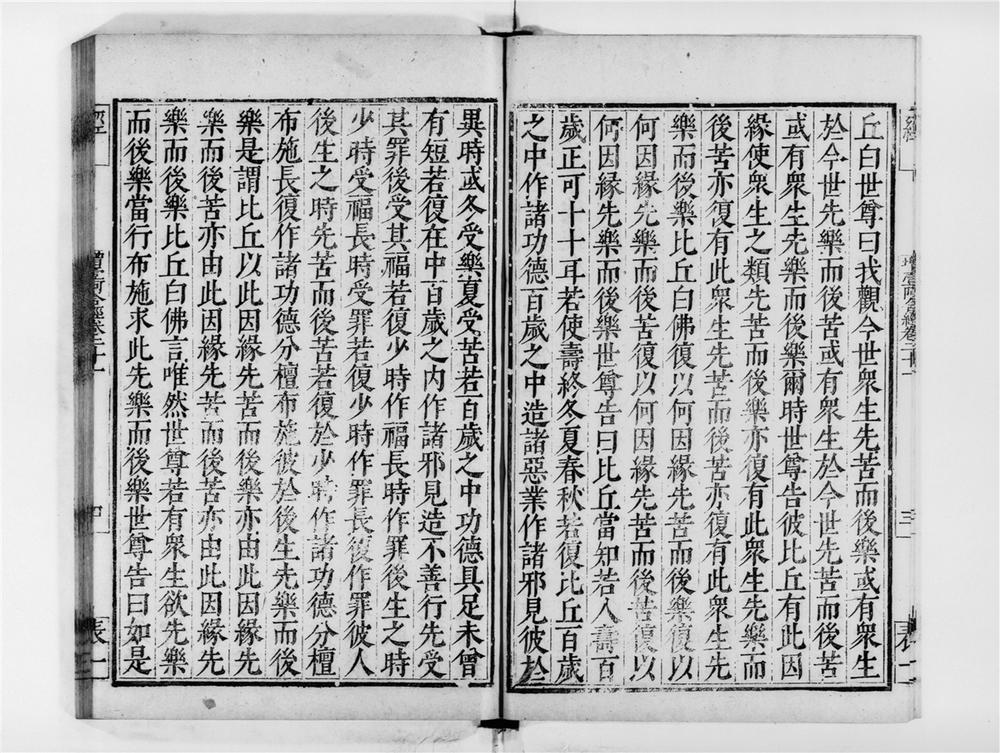 丘白世尊曰我觀今世衆生先苦而後樂或有衆生
於今世先樂而後苦或有衆生於今世先苦而後苦
或有衆生先樂而後樂爾時世尊告彼比丘有此因
緣使衆生之類先苦而後樂亦復有此衆生先樂而
後苦亦復有此衆生先苦而後苦亦復有此衆生先
樂而後樂比丘白佛復以何因緣先苦而後樂復以
何因緣先樂而後苦復以何因緣先苦而後苦復以
何因緣先樂而後樂世尊告曰比丘當知若人壽百
歲正可十十耳若使壽終冬夏春秋若復比丘百歲
之中作諸功德百歲之中造諸惡業作諸邪見彼於
異時或冬受樂夏受苦若百歲之中功德具足未曾
有短若復在中百歲之内作諸邪見造不善行先受
其罪後受其福若復少時作福長時作罪後生之時
少時受福長時受罪若復少時作罪長復作罪彼人
後生之時先苦而後苦若復於少時作諸功德分檀
布施長復作諸功德分檀布施彼於後生先樂而後
樂是謂比丘以此因緣先苦而後樂亦由此因緣先
樂而後苦亦由此因緣先苦而後苦亦由此因緣先
樂而後樂比丘白佛言唯然世尊若有衆生欲先樂
而後樂當行布施求此先樂而後樂世尊告曰如是